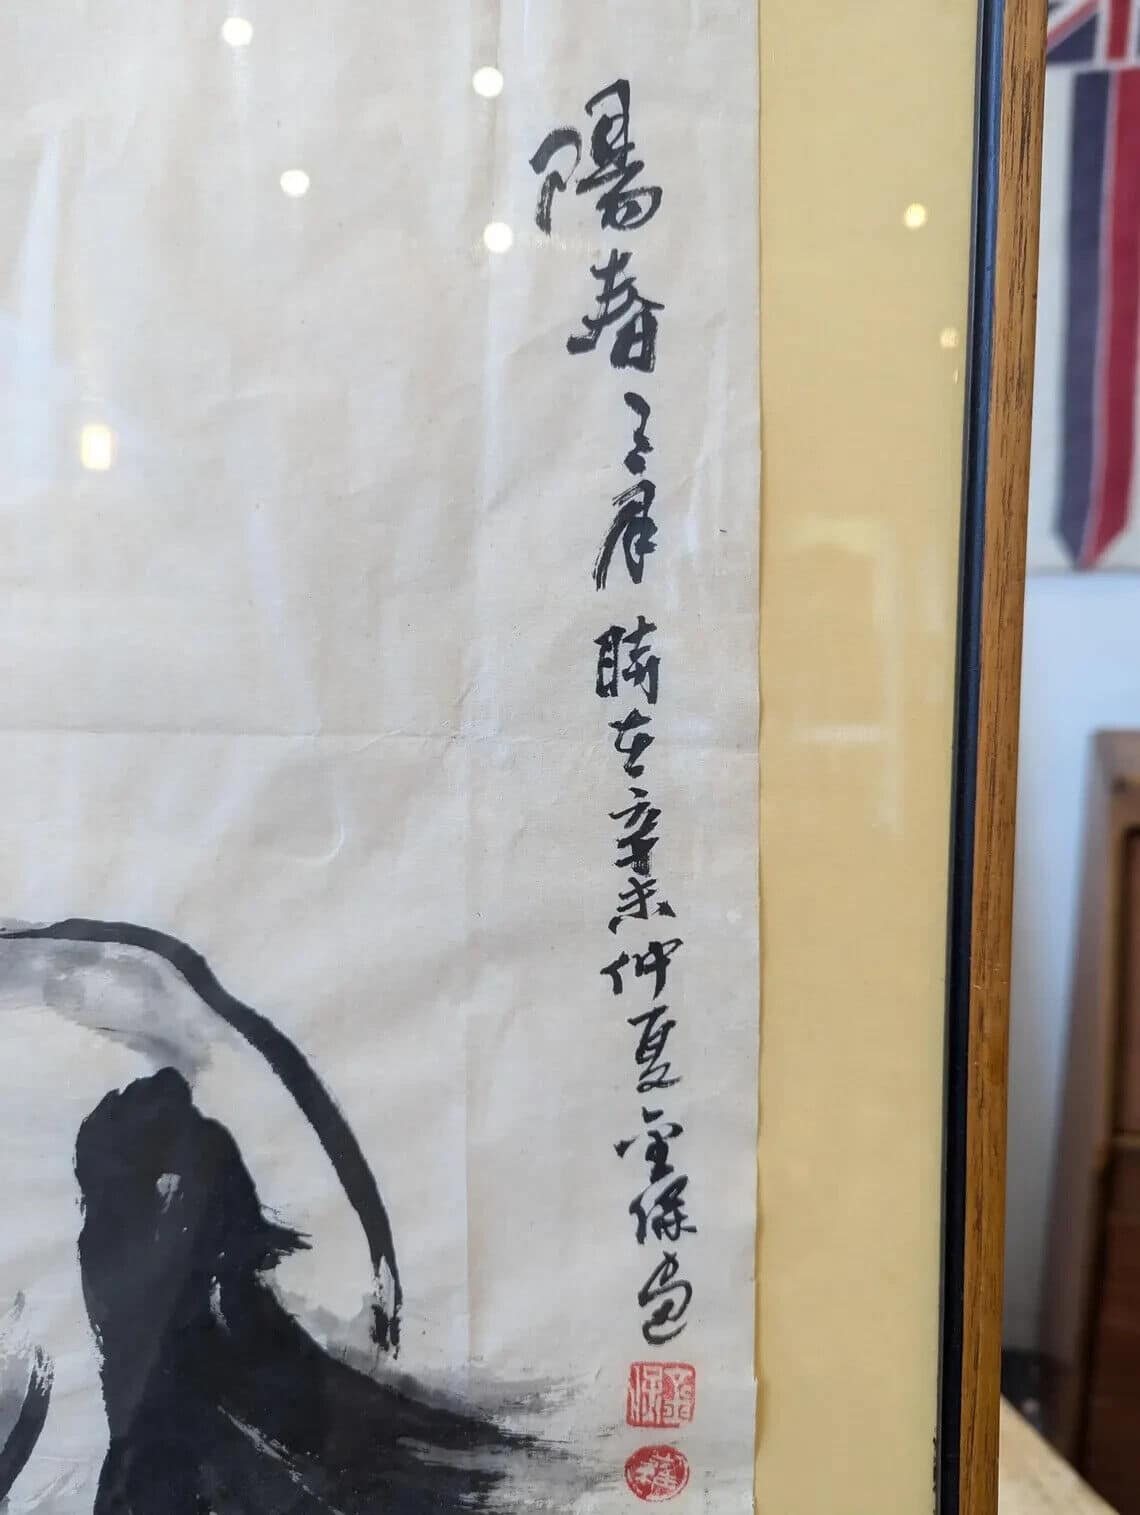 陽春三月時在辛未仲夏金保画